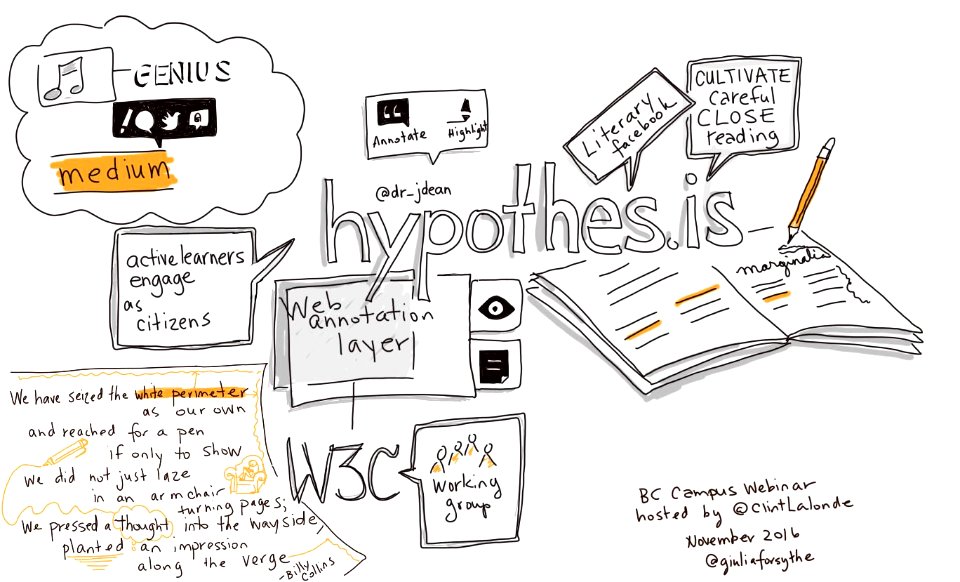 GENIUS
medium
Annotate
Highlight
Literary
facebook
CULTIVATE
careful
CLOSE
reading
@dr_jdean
hypothes.is
active learners
engage
as
citizens
Web
annotation
layer
marginalia
We have seized the white perimeter
as our own
and reached for a pen
if only to show
we did not just laze
in an armchair
turning pages;
We pressed a thought into the wayside,
planted an impression
along the verge
-Billy
Collins
W3C
Working
group
BC Campus Webinar
hosted by @ClintLalonde
November 2016
@giuliaforsythe